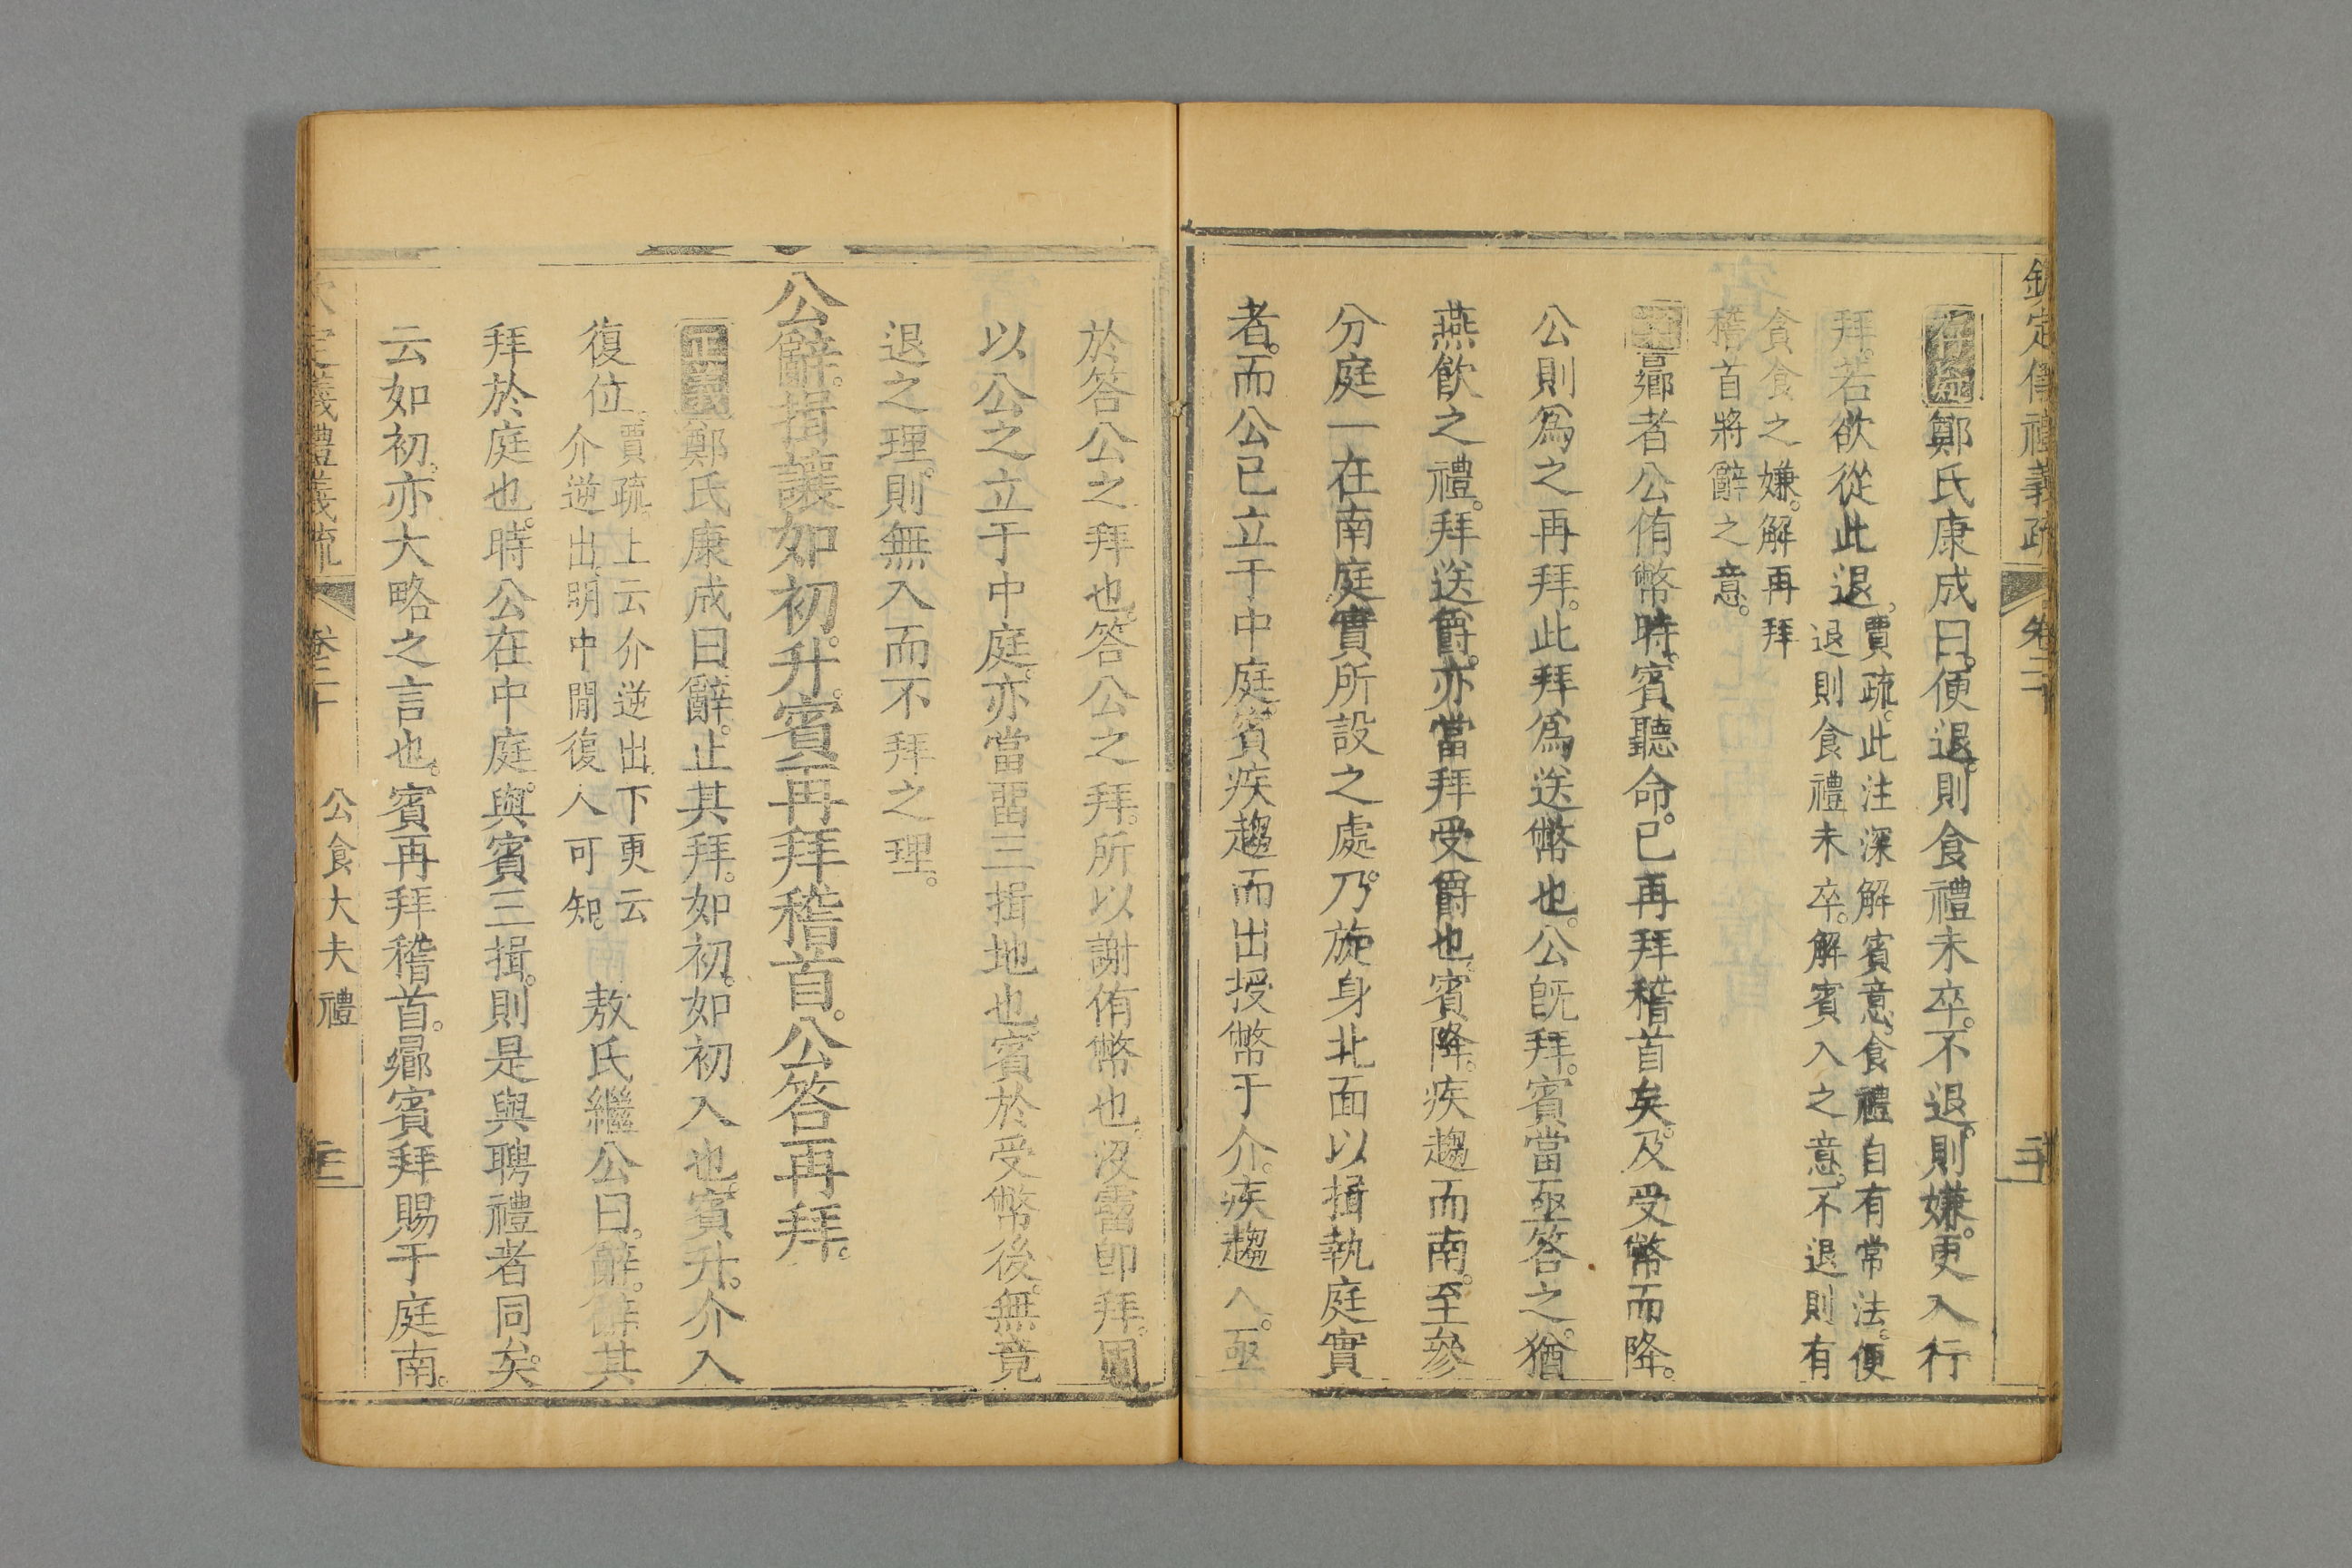 欽定儀禮義疏 卷二十 二十
存疑鄭氏康成曰。便退。則食禮未卒。不退。則嫌。更入行
拜。若欲從此退。賈疏。此注深解賓意。食禮自有常法。便
退則食禮未卒。解賓入之意。不退則有
貪食之嫌。解再拜
稽首將辭之意。
案曏者公侑幣時。賓聽命。已再拜稽首矣。及受幣而降。
公則爲之再拜。此拜爲送幣也。公旣拜。賓當亟答之。猶
燕飮之禮。拜送爵。亦當拜受爵也。賓降。疾趨而南。至參
分庭一在南庭實所設之處。乃旋身北面以揖執庭實
者。而公已立于中庭。賓疾趨而出授幣于介。疾趨入。亟
於答公之拜也。答公之拜。所以謝侑幣也。沒霤卽拜。固
以公之立于中庭。亦當畱三揖地也。賓於受幣後。無竟
退之理。則無入而不拜之理。
公辭。揖讓如初。升。賓再拜稽首。公答再拜。
正義鄭氏康成曰。辭。止其拜。如初。如初入也。賓升。介入
復位。賈疏。上云介逆出。下更云
介逆出。明中閒復入可知。
敖氏繼公曰。辭。辭其
拜於庭也。時公在中庭。與賓三揖。則是與聘禮者同矣。
云如初。亦大略之言也。賓再拜稽首。曏賓拜賜于庭南。
欽定儀禮義疏 卷二十 公食大夫禮